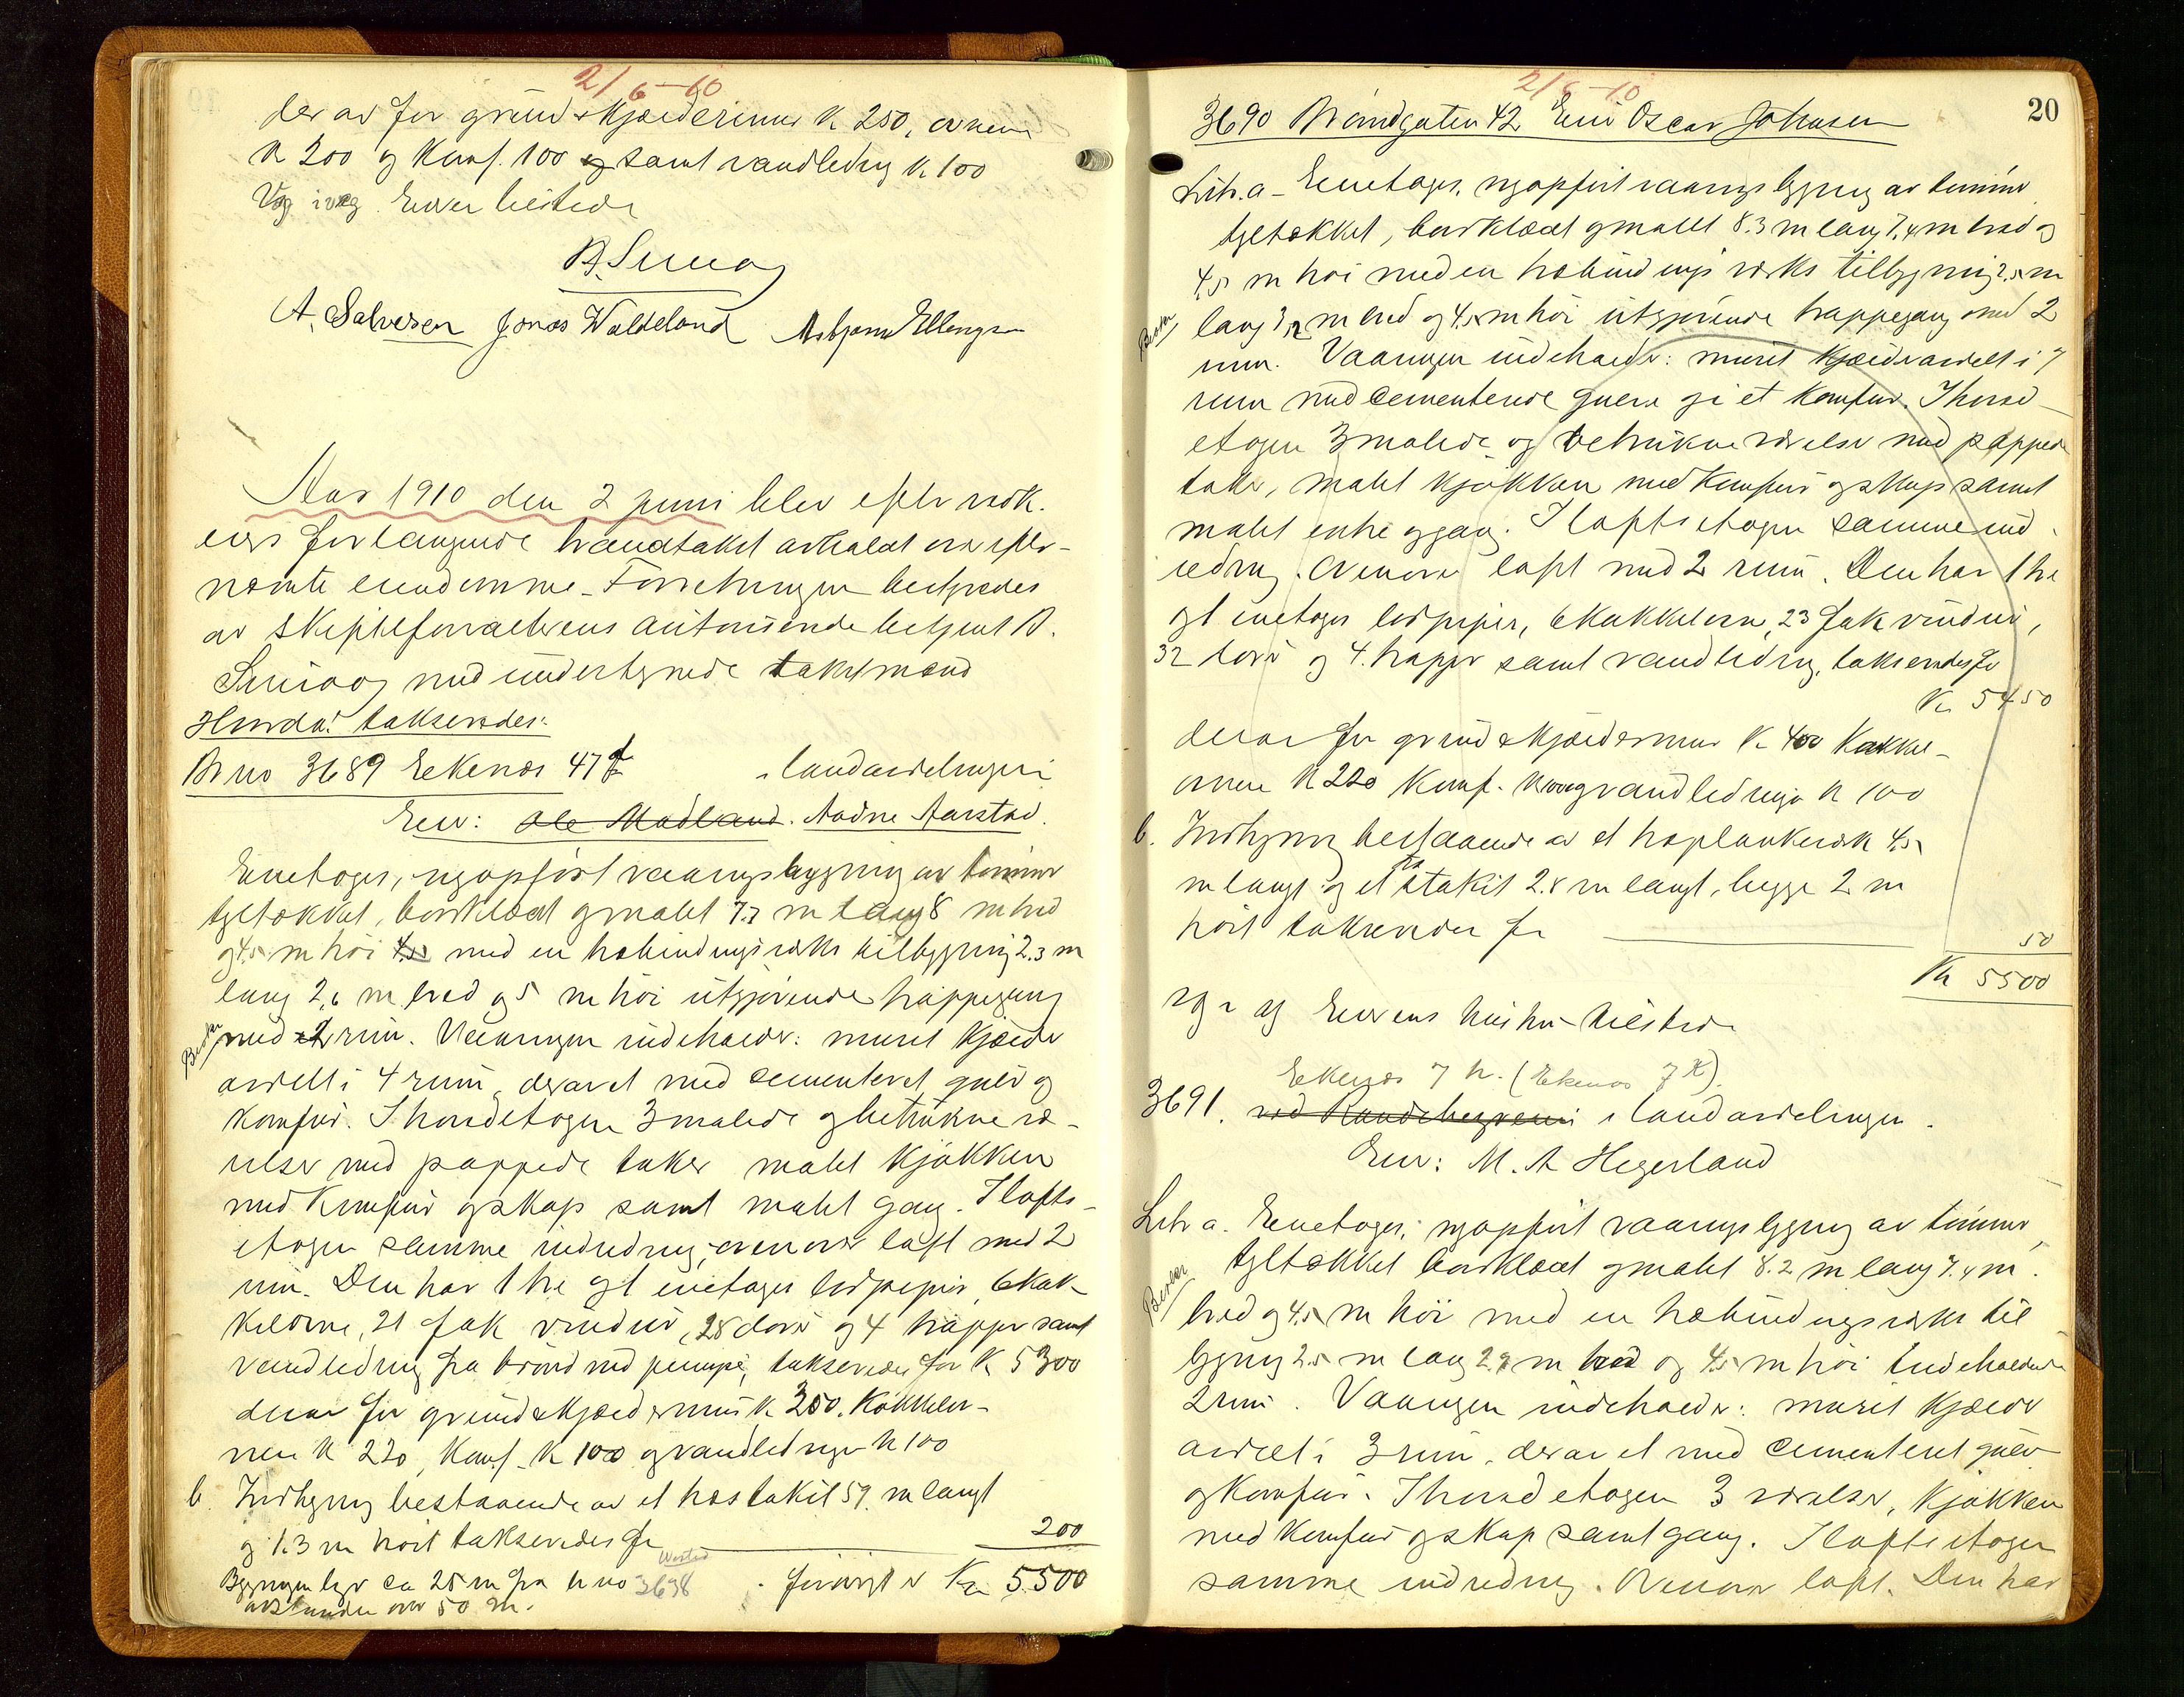 2/6-10
derav for grund & kjæderimur k 250, ovnene
k 200 og Komf. 100 samt vandledng k 100
Vg i væg. Eieren tilstede
A. Salvesen Jonas Waldeland Asbjørn Ellingsen
Aar 1910 den 2 juni blev efter vedk.
eiers forlangende branntakst avholdt over efter-
nævnte eiendomme. Forretningen bestyredes
av skifteforvalterens autoriserede betjent B.
med undertegnede takstmænd
Hvorda: takseredes:
Br no 3689 Eekenæs 47 f i landavdelingen
Eier: Ole Madland. Aadne Aarstad.
Eenetages, nyopført vaaningsbygning av tømmer
tgltækket, bordklædt og malet 7.7 m lang 8 m bred
og 4.5 m høi 4.5 med en træbindingsverks tilbygning 2.3 m
lang 2,6 m bred og 5 m høi utgjørende trappegang
med 2 rum. Vaaningen indeholder: muret kjælder
avdelt i 4 rum, derav et med cementeret gulv og
komfur. I hovedetagen 3 malede og betrukne væ-
relser med pappede taker malet kjøkken
med komfur og skap samt malet gang. I lofts-
etagen samme indredning, ovenover loft med 2
rum. Den har 1 tre og 1 enetages rørpiper, 6 kak-
kelovne, 21 fak vinduer, 28 dører og 4 trapper samt
vandledning fra brønd med pumpe, takseredes for k 5300
derav for grund & kjældermur k 350. Kakkelov-
nene k 220, Komf. k 100 og vandledningen k 100
b. Indhegning bestaaende av et træstakit 59. m langt
og 1.3 m høit takseredes for 200
Bygningen ligger ca 25 m fra br no 3638 forøvrigt er Kr. 5500
avstanden over 50 m.
2/6-10
20
3690 Brandgaten 42 Eier Oscar Johnsen
Litr. a - Eenetages, nyopført vaaningsbygning av tømmer
tgltækket, bordklædt og malet 8.3 m lang 7,4 m bred og
4,5 m høi med en træbindingsverks tilbygning 2,5 m
lang 3,2 m bred og 4,5 m høi utgjørende trappegang med 2
rum. Vaaningen indeholder: muret kjælder avdelt i 7
rum med cementerede gulve og i et komfur. I hoved-
etagen 3 malede og betrukne værelser med pappede
taker, malet kjøkken med komfur og skap samt
malet entre og gang. I loftsetagen samme ind-
redning. Ovenover loft med 2 rum. Den har 1 tre
og 1 enetages rørpiper, 6 kakkelovne, 23 fak vinduer,
32 dører og 4. trapper samt vandledning, takseredes for
Kr. 5450
derav for grund & kjældermur k 400 Kakkel-
ovnene k 220 Komf. k 100 og vandledningen k 100
b. Indhegning bestaaende av et træplankeverk 4,5
m langt og et stakit 2.8 m langt, begge 2 m
høit takseredes for 50
Kr 5500
Eierens hustru tilstede
Eekenæs 7 h. (Ekenæs 7 K).
3691. ved Randebergveien i landavdelingen.
Eier: M. A Hegerland
Litr a. Eenetages, nyopført vaaningsbygning av tømmer,
tgltækket bordklædt og malet 8.2 m lang 7.4 m.
bred og 4.5 m høi med en træbindingsverks til
bygning 2.5 m lang 2.9 m bred og 4,5 m høi indeholdende
2 rum. Vaaningen indeholder: muret kjælder
avdelt i 3 rum, derav et med cementeret gulv
og komfur. I hovedetagen 3 værelser, kjøkken
med komfur og skap samt gang. I loftsetagen
samme indredning. Ovenover loft. Den har